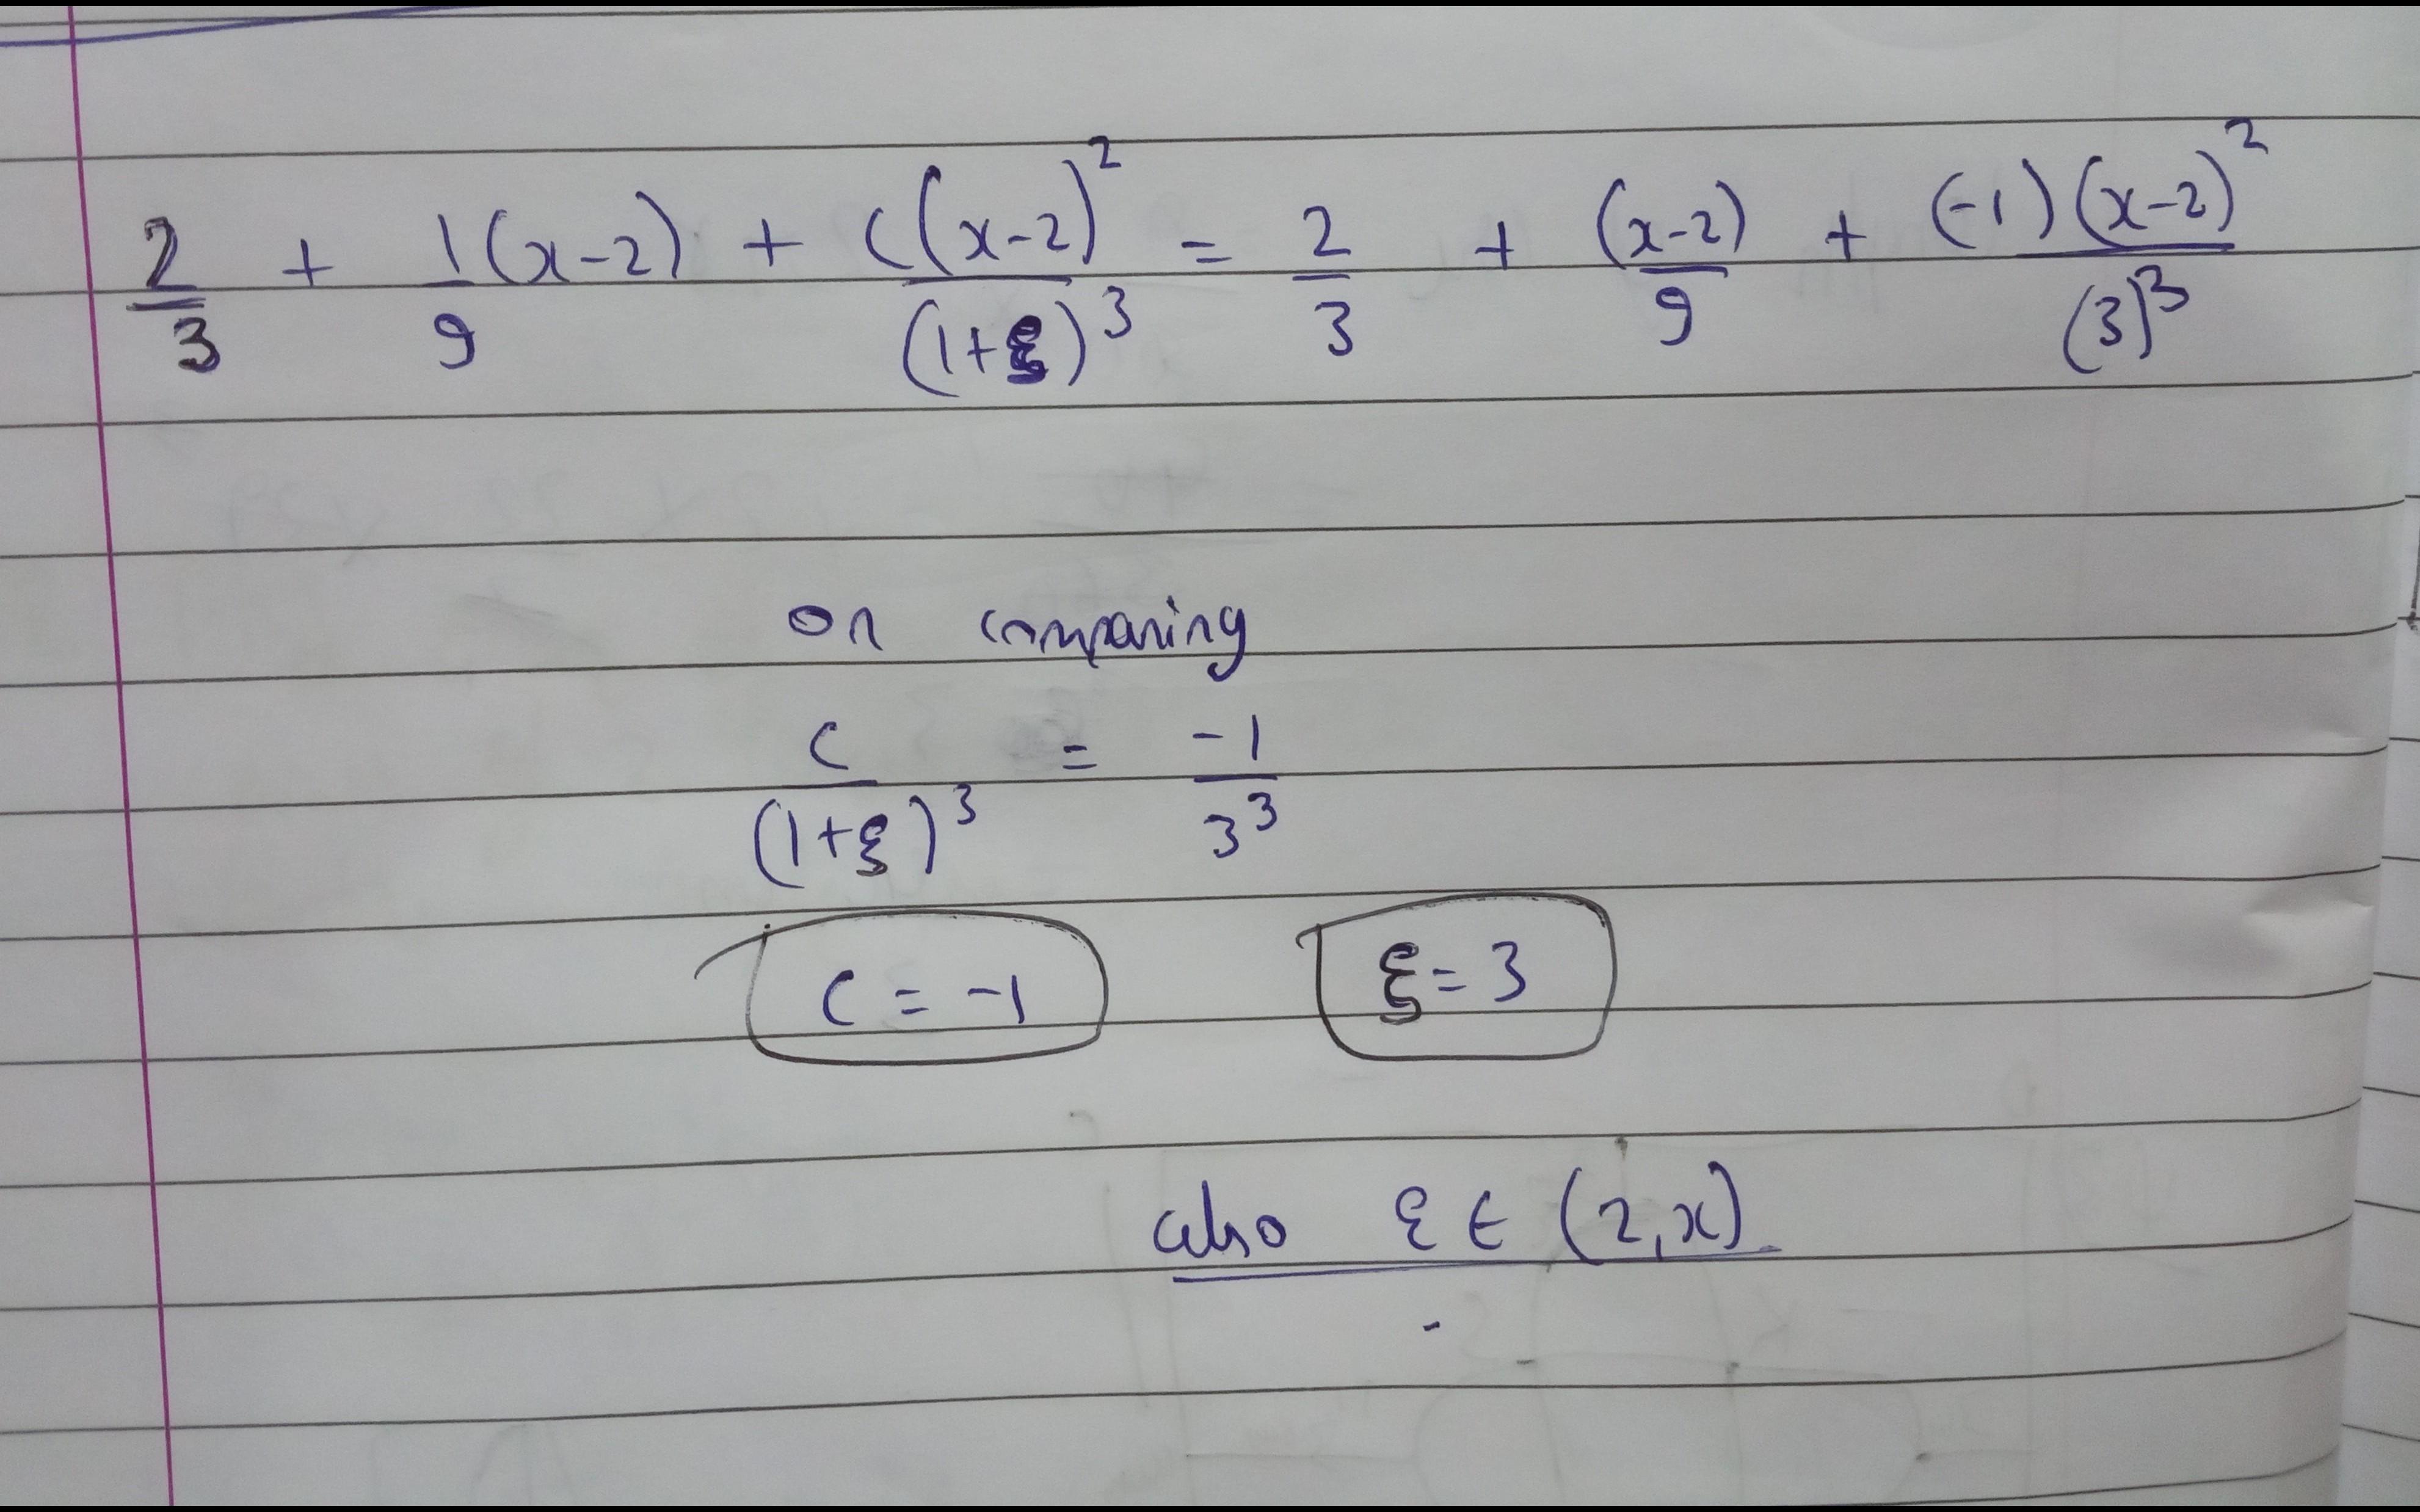 2/3 + 1/9 (x-2) + C(x-2)²/(1+ξ)³ = 2/3 + (x-2)/9 + (-1)(x-2)²/(3)³
on comparing
C/(1+ξ)³ = -1/3³
C = -1 ξ = 3
also ξ ∈ (2,x)